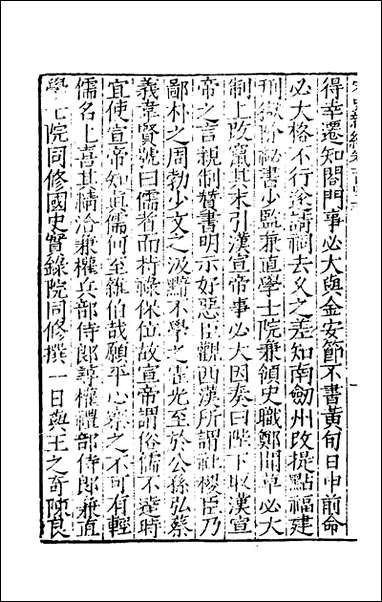 得幸遷知閤門事必大與金安節不書黃旬日中前命
必大格不行遂請祠去久之差知南劒州改提點福建
刑獄除祕書少監兼直學士院兼領史職鄭聞草必大
制上改竄其末引漢宣帝事必大因奏曰陛下取漢宣
帝之言親制贊書明示好惡臣觀西漢所謂社稷臣乃
鄙朴之周勃少文之汲黯不學之霍光至於公孫弘蔡
義韋賢號曰儒者而持祿保位故宣帝謂俗儒不達時
宜使宣帝知真儒何至雜伯哉願平心察之不可有輕
儒名上喜其精洽兼權兵部侍郎尋權禮部侍郎兼直
學士院同修國史實錄院同修撰一日與王之奇陳良